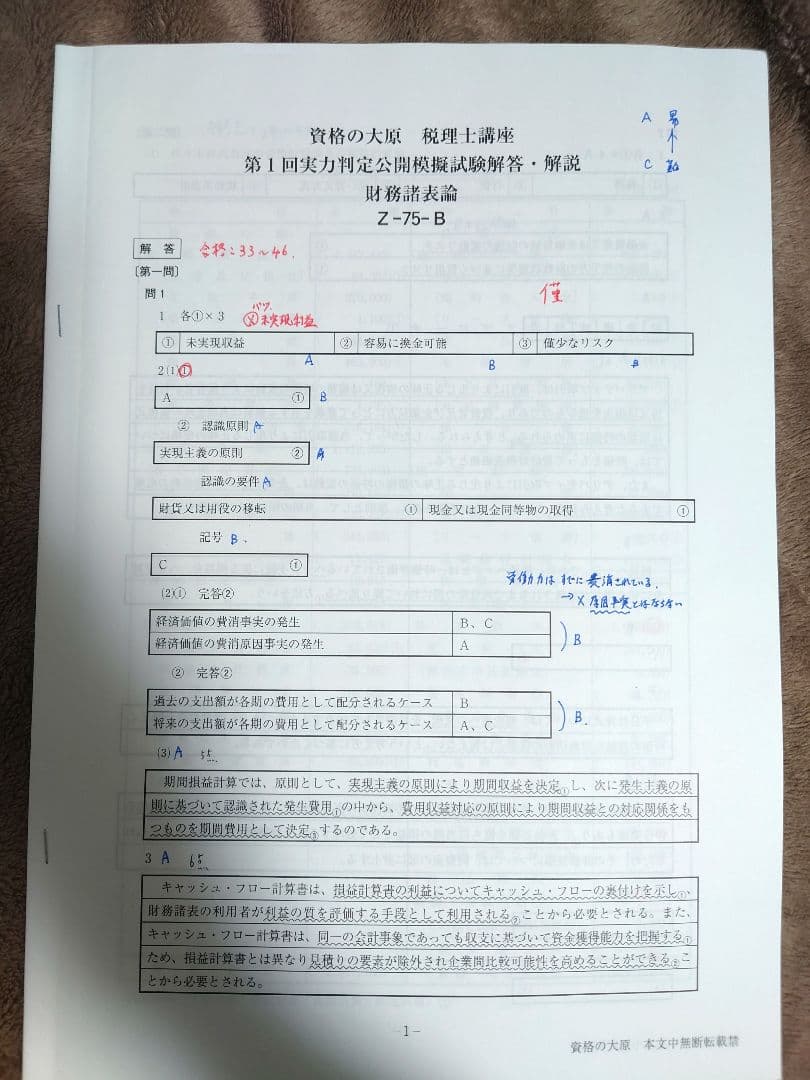 資格の大原 税理士講座
第1回実力判定公開模擬試験解答・解説
財務諸表論
Z-75-B
A 易
C 難
解答 合格:33〜46.
〔第一問〕
問1 僅
1 各①×3 バツ ⓧ未実現利益
① 未実現収益 ② 容易に換金可能 ③ 僅少なリスク
A B A
2(1)①
A ① B
② 認識原則 A
実現主義の原則 ② A
認識の要件 A
財貨又は用役の移転 ① 現金又は現金同等物の取得 ①
記号 B.
C ①
労働力はすでに費消されている.
(2)① 完答② →× 原因事実とはならない
経済価値の費消事実の発生 B、C
経済価値の費消原因事実の発生 A
B
② 完答②
過去の支出額が各期の費用として配分されるケース B
将来の支出額が各期の費用として配分されるケース A、C
B.
(3) A 5点
期間損益計算では、原則として、実現主義の原則により期間収益を決定①し、次に発生主義の原
則に基づいて認識された発生費用①の中から、費用収益対応の原則により期間収益との対応関係をも
つものを期間費用として決定③するのである。
3 A 6点
キャッシュ・フロー計算書は、損益計算書の利益についてキャッシュ・フローの裏付けを示し①、
財務諸表の利用者が利益の質を評価する手段として利用される②ことから必要とされる。また、
キャッシュ・フロー計算書は、同一の会計事象であっても収支に基づいて資金獲得能力を把握する①
ため、損益計算書とは異なり見積りの要素が除外され企業間比較可能性を高めることができる②こ
とから必要とされる。
-1-
資格の大原 本文中無断転載禁